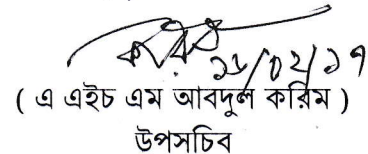 করিম ১৬/০২/১৭
( এ এইচ এম আবদুল করিম )
উপসচিব